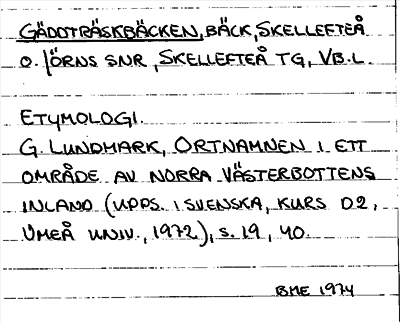 GÄDDTRÄSKBÄCKEN, BÄCK, SKELLEFTEÅ
O. JÖRNS SNR, SKELLEFTEÅ TG, VB. L.
ETYMOLOGI.
G. LUNDMARK, ORTNAMNEN I ETT
OMRÅDE AV NORRA VÄSTERBOTTENS
INLAND (UPPS. I SVENSKA, KURS D2,
UMEÅ UNIV., 1972), S. 19, 40.
BME 1974